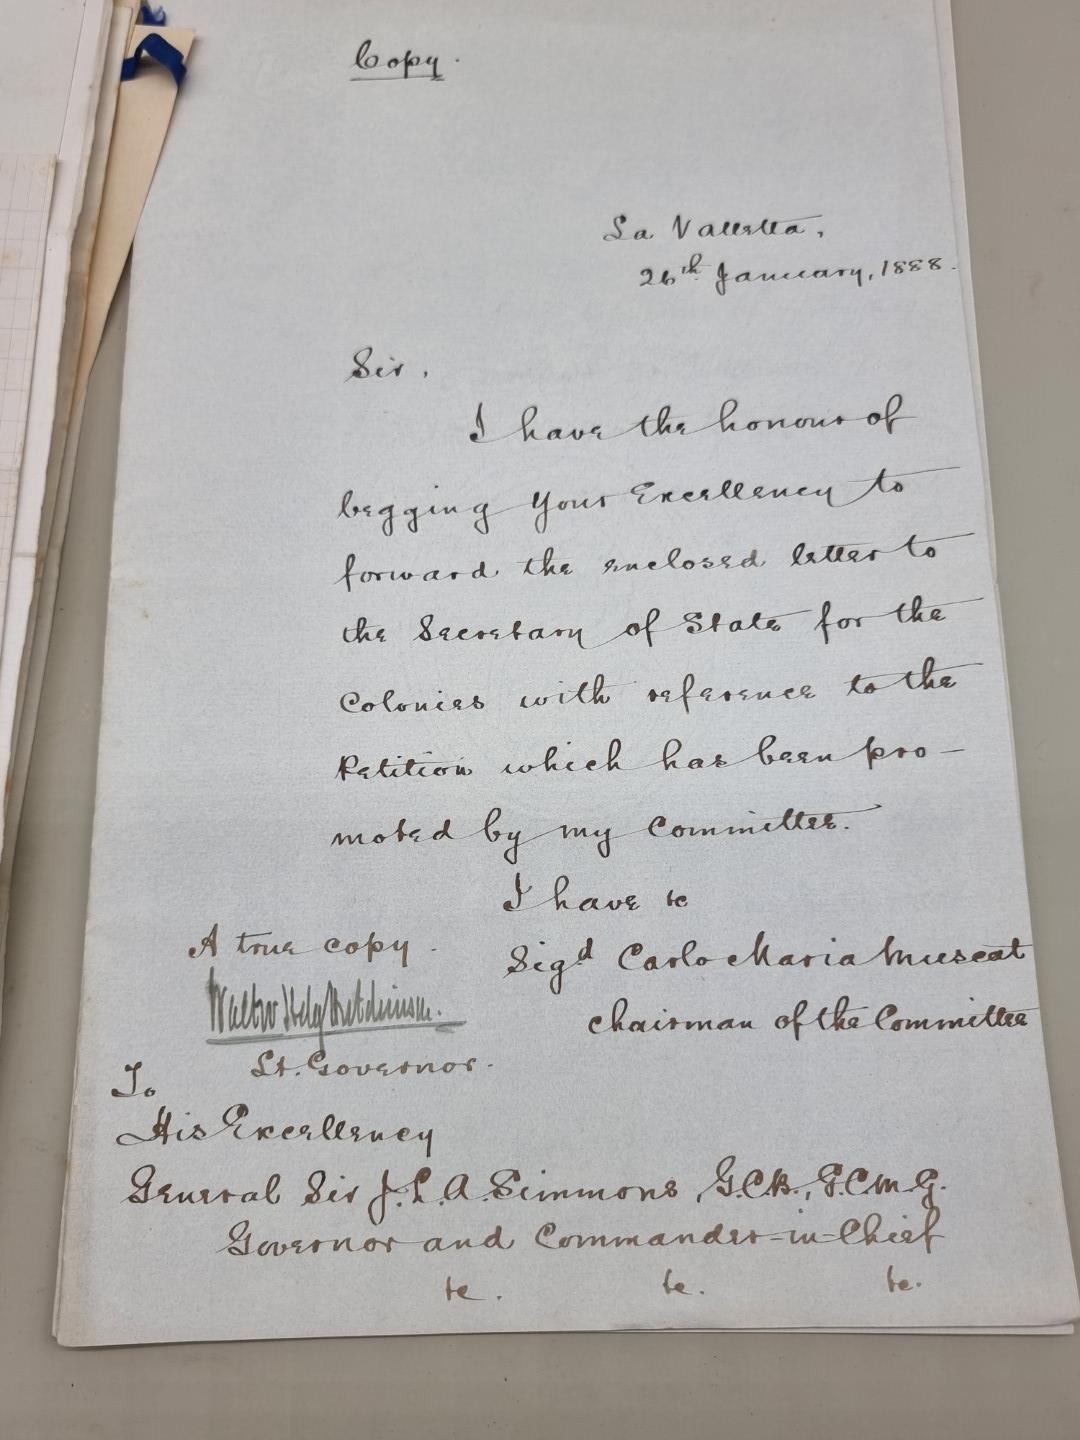 Copy.
La Valletta,
26th January, 1888.
Sir,
I have the honour of
begging Your Excellency to
forward the enclosed letter to
the Secretary of State for the
Colonies with reference to the
Petition which has been pro-
moted by my Committee.
I have &c
Sigd Carlo Maria Muscat
Chairman of the Committee
A true copy.
Walter Hely Hutchinson.
Lt. Governor.
To
His Excellency
General Sir J. L. A. Simmons, G.C.B., G.C.M.G.
Governor and Commander-in-Chief
&c. &c. &c.